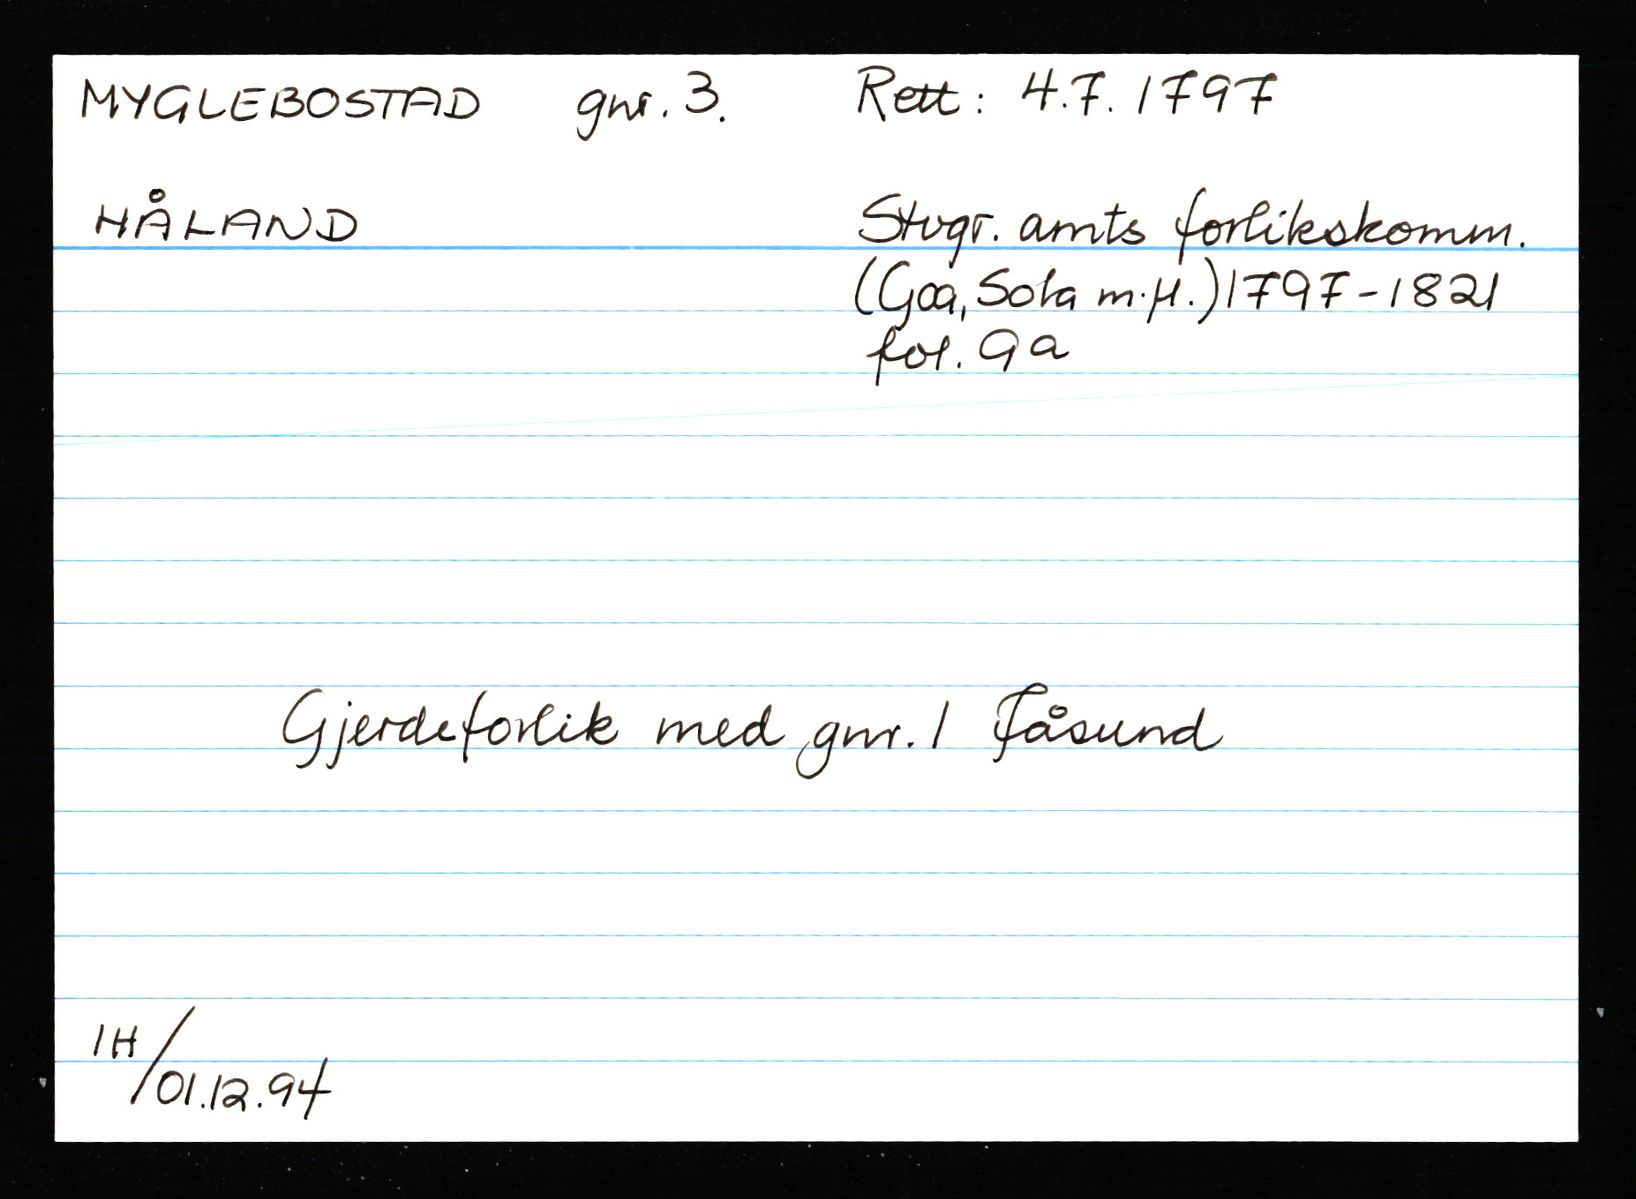 MYGLEBOSTAD gnr. 3. Rett: 4.7.1797
HÅLAND Stvgr. amts forlikskomm.
(Goa, Sola m.fl.) 1797-1821
fol. 9a
Gjerdeforlik med gnr. 1 Fåsund
IH/
01.12.94